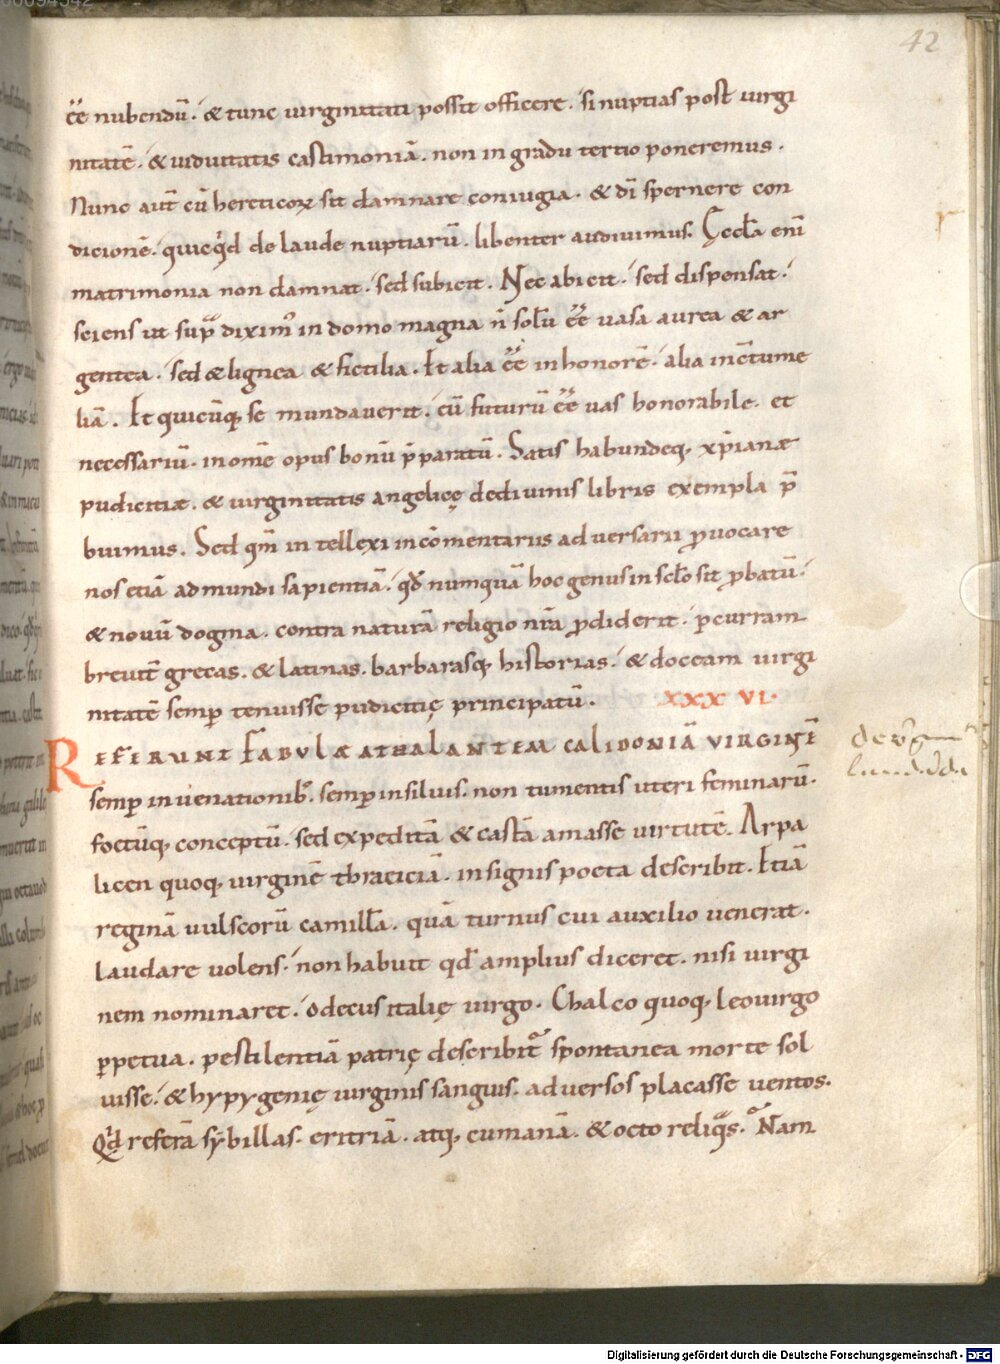 42
ēē nubendū. & tunc uirginitati possit officere. si nuptias post uirgi
nitatē. & uiduitatis castimoniā. non in gradu tertio poneremus.
Nunc aut̄ cū hereticoꝝ sit damnare coniugia. & dī spernere con
dicionē. quicq̇d de laude nuptiarū. libenter audiuimus. Ęccła enī
matrimonia non damnat. sed subicit. Nec abicit. sed dispensat.
sciens ut supᷓ diximꝰ in domo magna n̄ solū ēē uasa aurea & ar
gentea. sed & lignea & fictilia. Et alia ēē in honorē. alia in c̄tume
liā. Et quicūq; se mundauerit. cū futurū ēē uas honorabile. et
necessariū. in om̄e opus bonū p̄paratū. Satis habundeq; xp̄ianæ
pudicitiæ. & uirginitatis angelicę de diuinis libris exempla p̄
buimus. Sed qm̄ intellexi in cōmentariis aduersarii ꝓuocare
nos etiā ad mundi sapientiā. qđ numquā hoc genus in scło sit ꝓbatū.
& nouū dogma. contra naturā religio nr̄a ꝓdiderit. ꝑcurram
breuit̄ grecas. & latinas. barbarasq; historias. & doceam uirgi
nitatē semꝑ tenuisse pudicitię principatū. XXXVI.
REFERUNT FABULÆ ATHALANTEM CALIDONIĀ VIRGINĒ
semꝑ in uenationib;. semꝑ in siluis. non tumentis uteri feminarū.
foetūq; conceptū. sed expeditā & castā amasse uirtutē. Arpa
licen quoq; uirginē thraciciā. insignis poeta describit. Etiā
reginā uulscorū camillā. quā turnus cui auxilio uenerat.
laudare uolens. non habuit qđ amplius diceret. nisi uirgi
nem nominaret. o decus italię uirgo. Chalco quoq; leo uirgo
ꝑpetua. pestilentiā patrię describit᷑ spontanea morte sol
uisse. & hypygenię uirginis sanguis. aduersos placasse uentos.
Qd referā sybillas. eritriā. atq; cumanā. & octo reliqᷓs. Nam
Digitalisierung gefördert durch die Deutsche Forschungsgemeinschaft - DFG